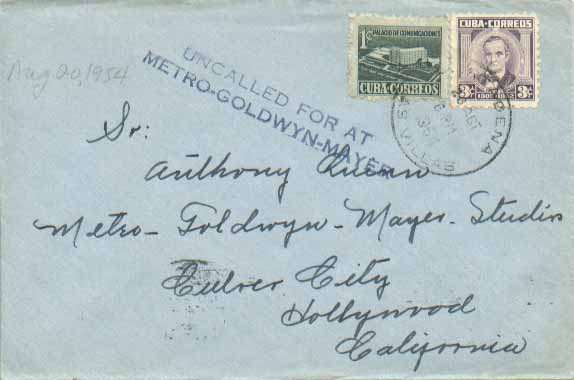 Aug 20, 1954
UNCALLED FOR AT
METRO-GOLDWYN-MAYER
1¢ PALACIO DE COMUNICACIONES
CUBA·CORREOS
CUBA·CORREOS
3¢ 3¢
LAS VILLAS
AGT
Sr:
Anthony Quinn
Metro-Goldwyn-Mayer-Studios
Culver City
Hollywood
California